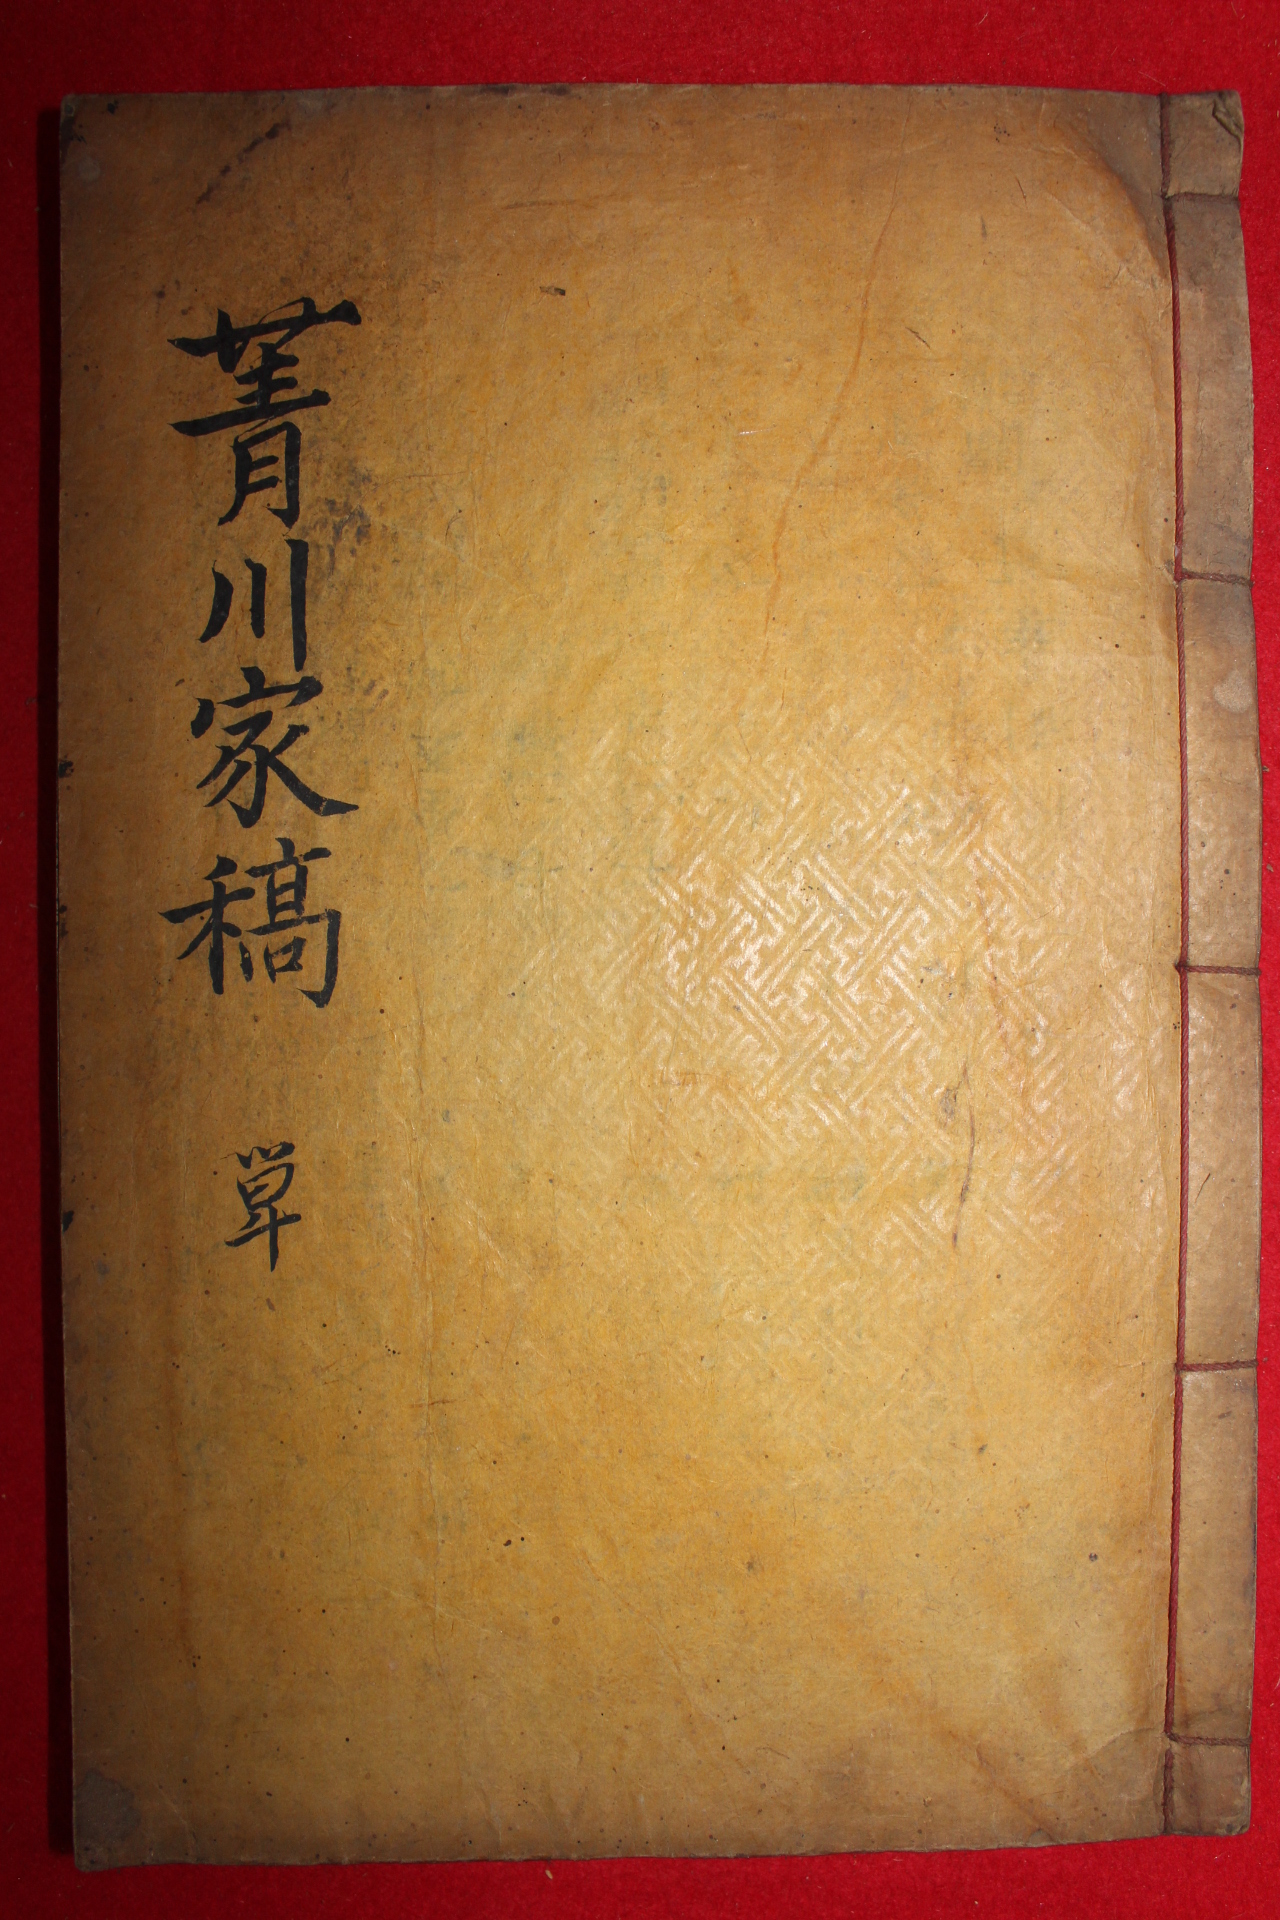 菁川家稿 單